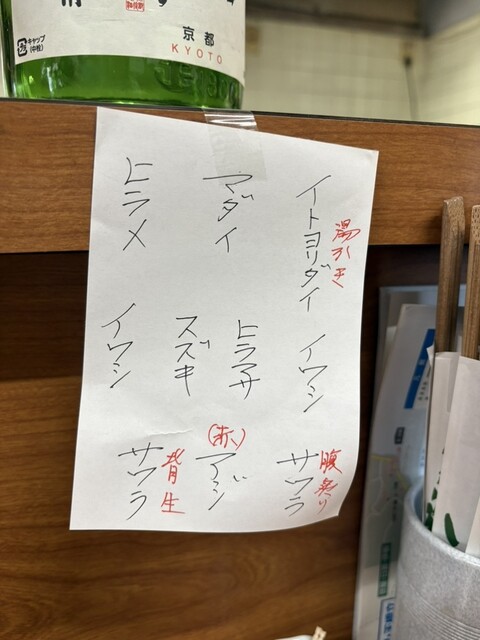 京都
KYOTO
キャップ
(中栓)
イトヨリダイ
湯引き
マダイ
ヒラメ
イワシ
ヒラマサ
スズキ
イワシ
サワラ
腹炙り
(赤)
アジ
サワラ
背生